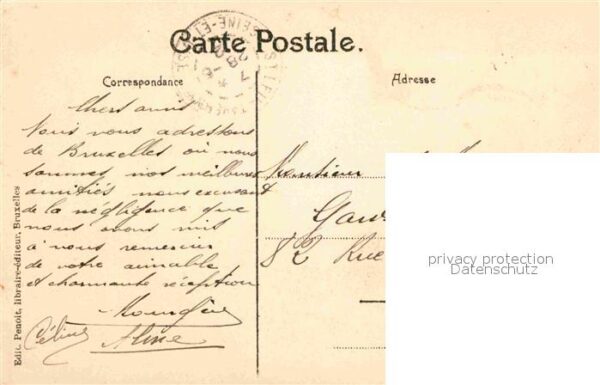 Carte Postale.
Correspondance
Adresse
Chers amis
Nous vous adressons
de Bruxelles où nous
sommes, nos meilleures
amitiés nous excusant
de la négligence que
nous avons mit
à nous remercier
de votre aimable
et charmante réception
Céline
Aline
Monsieur
82 Rue
privacy protection
Datenschutz
Edit. Penoit, libraire-éditeur, Bruxelles